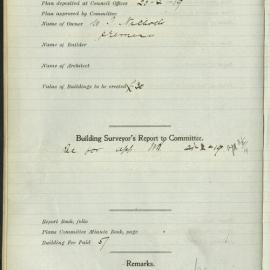 Plan deposited at Council Offices 21-2-19
Plan approved by Committee
Name of Owner W J Nicholls
Name of Builder
Name of Architect
Value of Buildings to be erected £30
Building Surveyor's Report to Committee.
for app
Report Book, folio
Plans Committee Minute Book, page
Building Fee Paid 5/
Remarks.